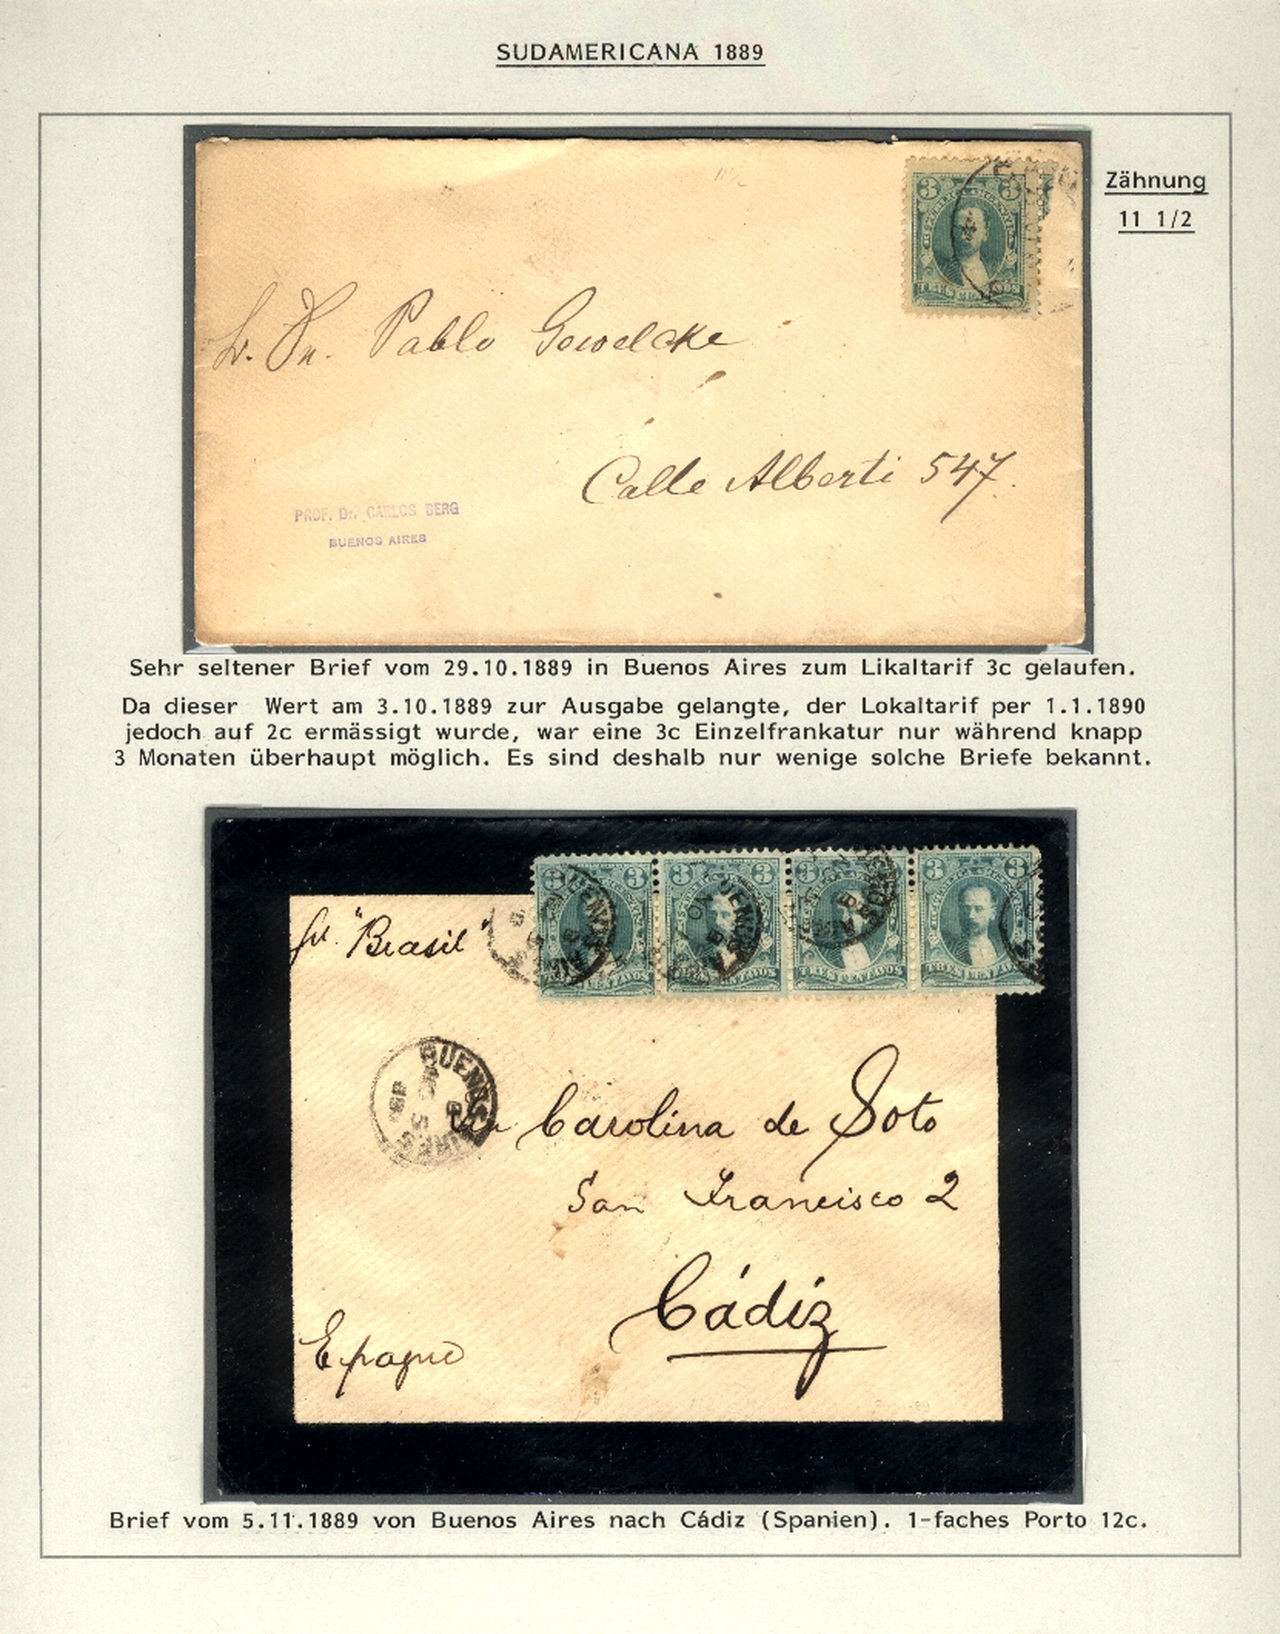 SUDAMERICANA 1889
Zähnung
11 1/2
3 3
TRES CENTAVOS
Pablo Gowelcke
Calle Alberti 547.
PROF. Dr. CARLOS BERG
BUENOS AIRES
Sehr seltener Brief vom 29.10.1889 in Buenos Aires zum Likaltarif 3c gelaufen.
Da dieser Wert am 3.10.1889 zur Ausgabe gelangte, der Lokaltarif per 1.1.1890
jedoch auf 2c ermässigt wurde, war eine 3c Einzelfrankatur nur während knapp
3 Monaten überhaupt möglich. Es sind deshalb nur wenige solche Briefe bekannt.
3 3 3 3 3 3 3 3
TRES CENTAVOS TRES CENTAVOS TRES CENTAVOS TRES CENTAVOS
"Brasil"
BUENOS AIRES
Carolina de Soto
San Francisco 2
Cádiz
Epagne
Brief vom 5.11.1889 von Buenos Aires nach Cádiz (Spanien). 1-faches Porto 12c.